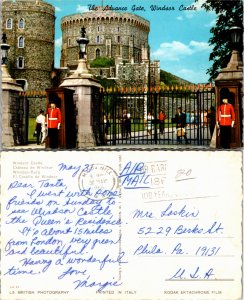 The Advance Gate, Windsor Castle
Windsor Castle
Château de Windsor
El Castillo de Windsor
May 31
Dear Tanta,
I went with some
friends on Sunday to
see Windsor Castle
the Queen's Residence
It's about 15 miles
from London, very green
and beautiful
Having a wonderful
time.
Love,
Margie
AIR
MAIL
Mrs. Laskin
5229 Berks St.
Phila. Pa. 19131
U.S.A
L.S. BRITISH PHOTOGRAPHY
PRINTED IN ITALY
KODAK EKTACHROME FILM